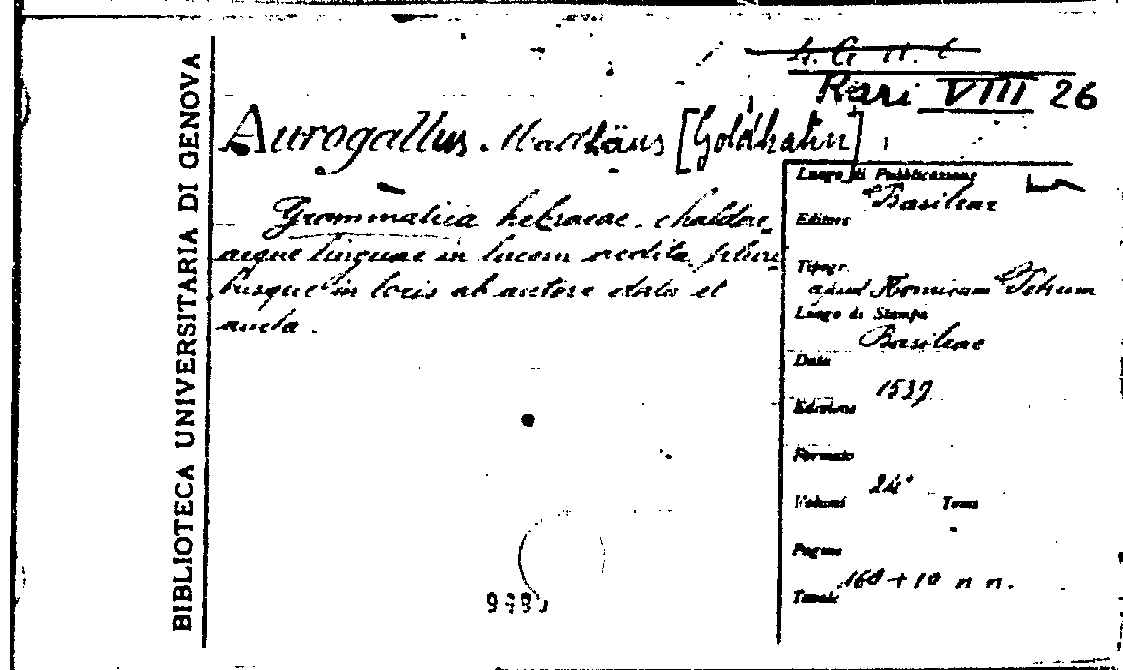 Rari VIII 26
Aurogallus Matthäus [Goldhahn]
Grammatica hebraeae chaldae
aeque linguae in lucem aedita, pluri
busque in locis ab autore et
aucta.
Luogo di Pubblicazione
Basileae
Editore
Tipogr.
apud Henricum Petrum
Luogo di Stampa
Basileae
Data
1539
Edizione
Formato
24°
Volumi Tomi
Pagine
168 + 10 n n.
Tavole
BIBLIOTECA UNIVERSITARIA DI GENOVA